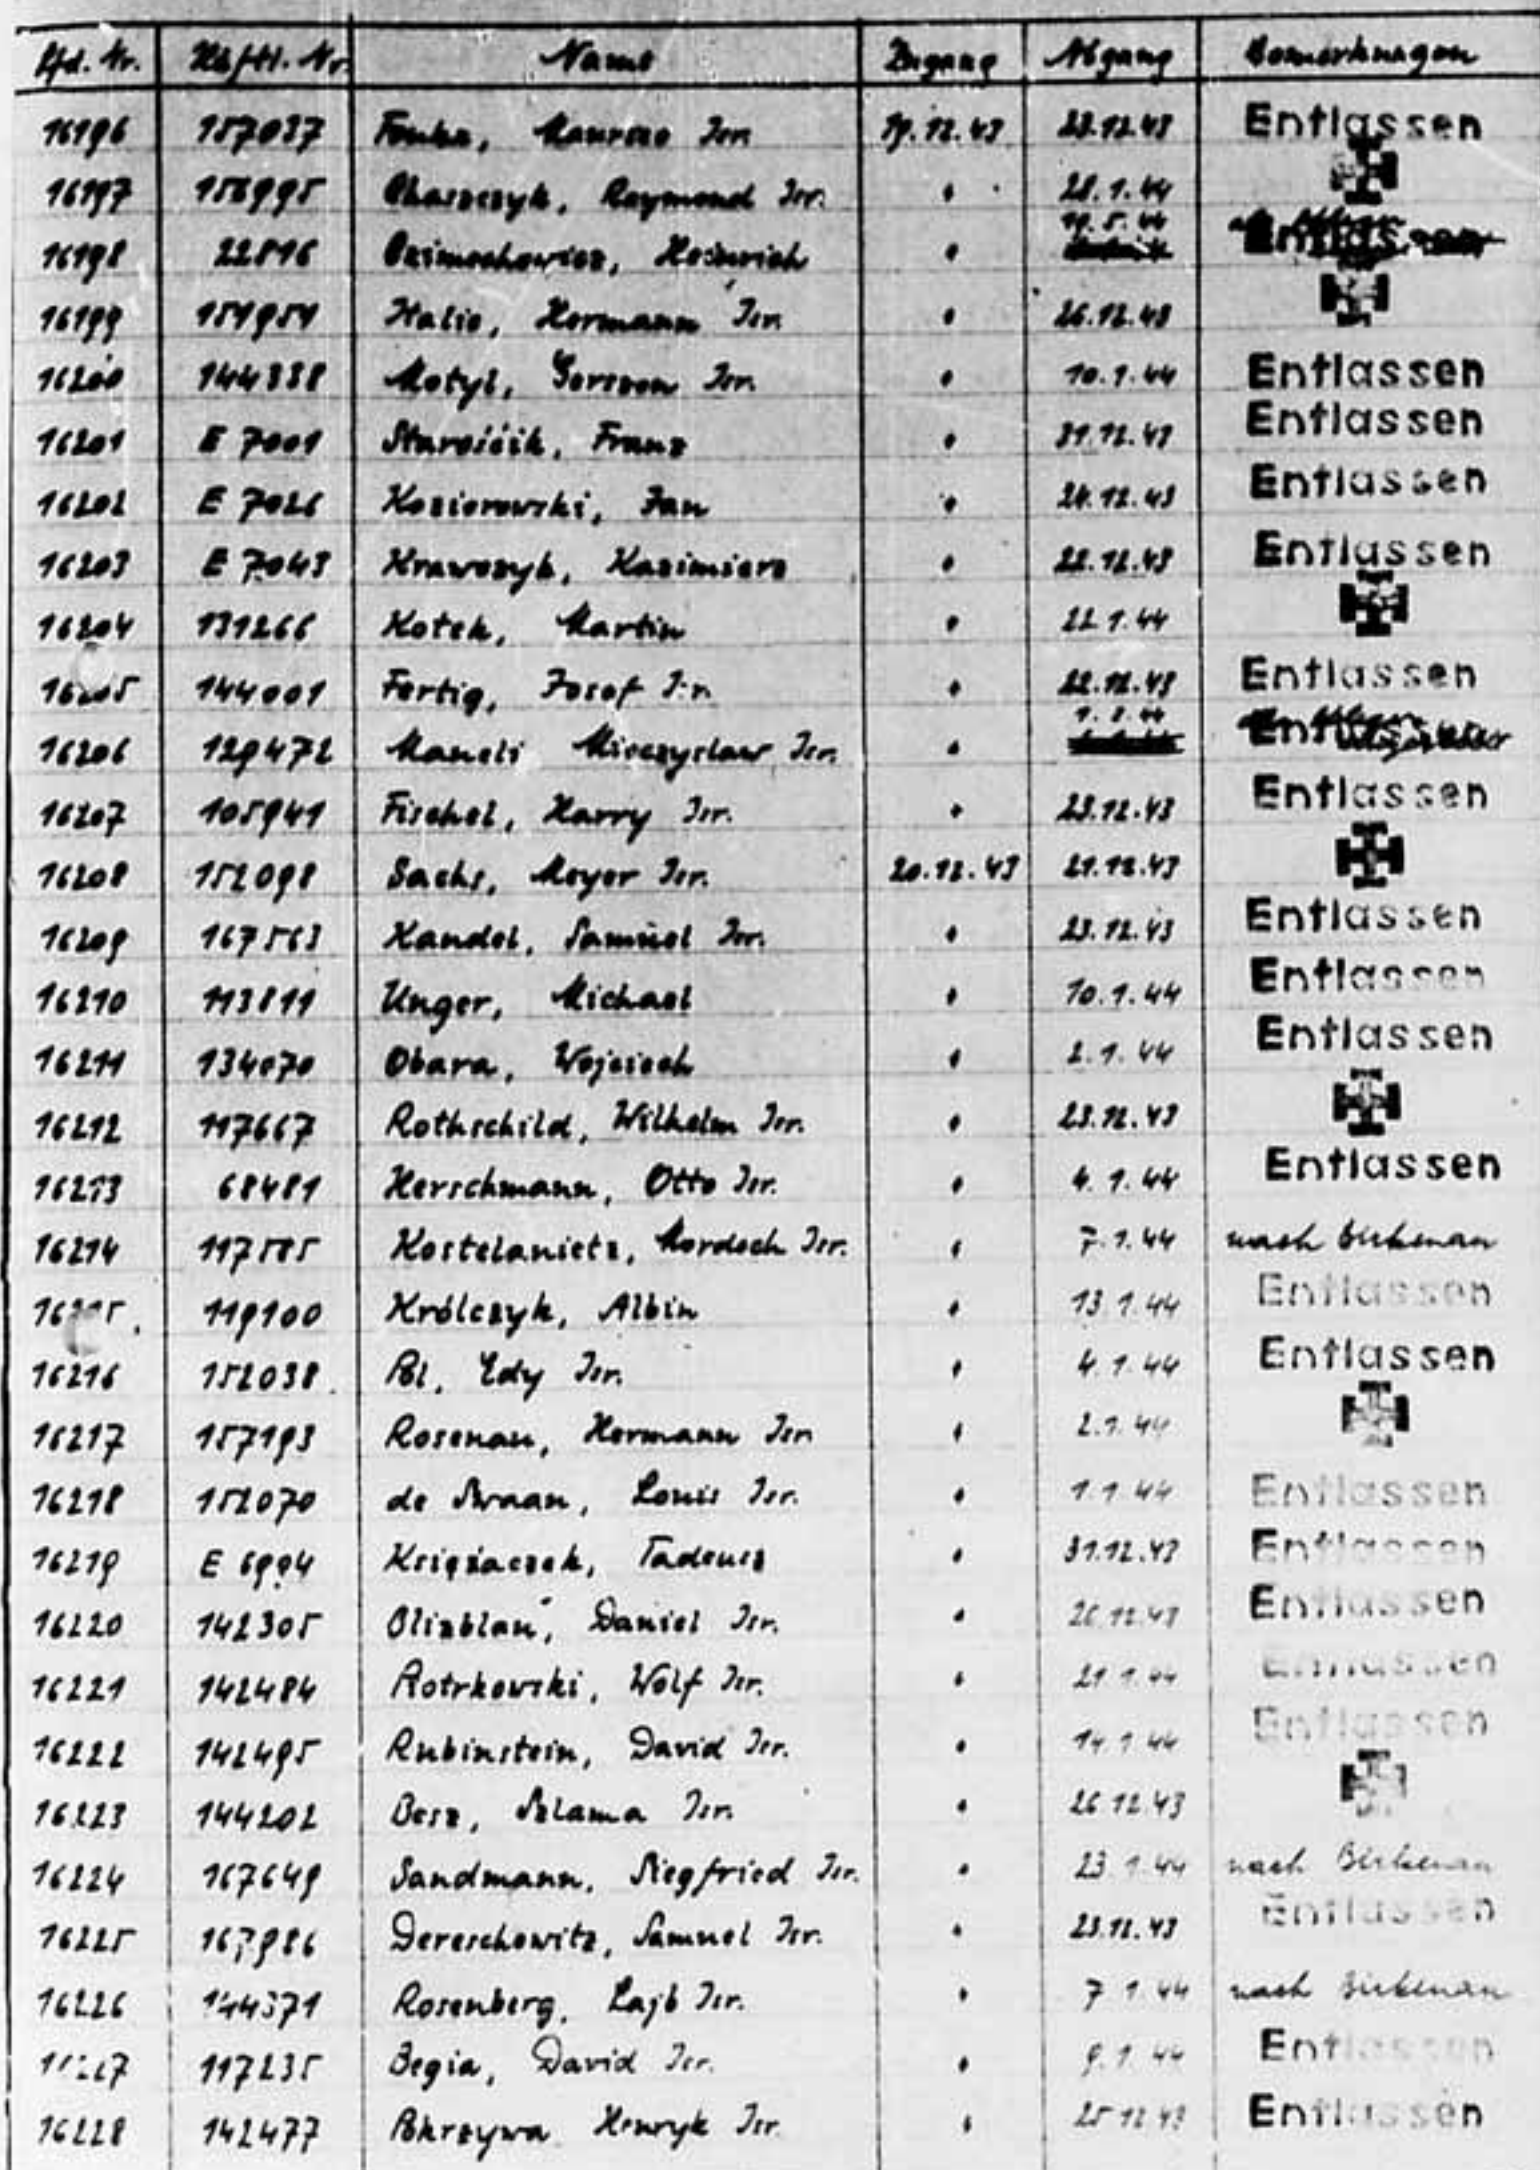 Lfd. Nr. Häftl. Nr. Name Zugang Abgang Bemerkungen
16196 157037 Maurice Isr. 19.12.43 23.12.43 Entlassen
16197 156995 Chaszczyk, Raymond Isr. " 28.1.44
16198 22816 Heinrich " 19.5.44
16199 151951 Italie, Hermann Isr. " 26.12.43
16200 144338 Motyl, Gerszon Isr. " 10.1.44 Entlassen
16201 E 7001 Starościk, Franz " 31.12.43 Entlassen
16202 E 7026 Koziorowski, Jan " 24.12.43 Entlassen
16203 E 7043 Krawczyk, Kazimierz " 22.12.43 Entlassen
16204 131266 Kotek, Martin " 22.1.44
16205 144001 Fertig, Josef Isr. " 22.12.43 Entlassen
16206 129472 Maneli Mieczyslaw Isr. "
16207 105941 Fischel, Harry Isr. " 23.12.43 Entlassen
16208 152098 Sachs, Meyer Isr. 20.12.43 21.12.43
16209 167563 Handel, Samuel Isr. " 23.12.43 Entlassen
16210 113811 Unger, Michael " 10.1.44 Entlassen
16211 134070 Obara, Wojciech " 2.1.44 Entlassen
16212 117667 Rothschild, Wilhelm Isr. " 23.12.43
16213 68481 Herschmann, Otto Isr. " 4.1.44 Entlassen
16214 117585 Kostelanietz, Mordech Isr. " 7.1.44 nach Birkenau
16215. 119100 Królczyk, Albin " 13.1.44 Entlassen
16216 152038 Pol, Edy Isr. " 4.1.44 Entlassen
16217 157193 Rosenau, Hermann Isr. " 2.1.44
16218 152070 de Swaan, Louis Isr. " 1.1.44 Entlassen
16219 E 6994 Księżaczek, Tadeusz " 31.12.43 Entlassen
16220 142305 Olizblau, Daniel Isr. " 26.12.43 Entlassen
16221 142484 Piotrkowski, Wolf Isr. " 21.1.44 Entlassen
16222 142495 Rubinstein, David Isr. " 14.1.44 Entlassen
16223 144202 Besz, Szlama Isr. " 26.12.43
16224 167649 Sandmann, Siegfried Isr. " 23.1.44 nach Birkenau
16225 167986 Dereschowitz, Samuel Isr. " 23.12.43 Entlassen
16226 144371 Rosenberg, Lajb Isr. " 7.1.44 nach Birkenau
16227 117235 Begia, David Isr. " 9.1.44 Entlassen
16228 142477 Pokrzywa Henryk Isr. " 25.12.43 Entlassen